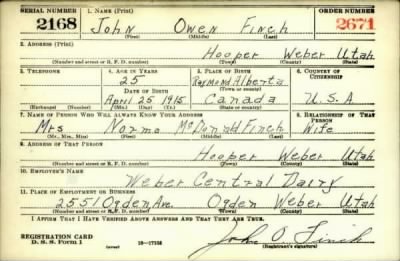 SERIAL NUMBER 1. NAME (Print) ORDER NUMBER
2168 John Owen Finch 2671
(First) (Middle) (Last)
2. ADDRESS (Print)
Hooper Weber Utah
(Number and street or R. F. D. number) (Town) (County) (State)
3. TELEPHONE 4. AGE IN YEARS 5. PLACE OF BIRTH 6. COUNTRY OF CITIZENSHIP
25 Raymond Alberta
DATE OF BIRTH (Town) (County)
April 25 1915 Canada U.S.A
(Exchange) (Number) (Mo.) (Day) (Yr.) (State or country)
7. NAME OF PERSON WHO WILL ALWAYS KNOW YOUR ADDRESS 8. RELATIONSHIP OF THAT PERSON
Mrs Norma McDonald Finch Wife
(Mr., Mrs., Miss) (First) (Middle) (Last)
9. ADDRESS OF THAT PERSON
Hooper Weber Utah
(Number and street or R. F. D. number) (Town) (County) (State)
10. EMPLOYER'S NAME
Weber Central Dairy
11. PLACE OF EMPLOYMENT OR BUSINESS
2551 Ogden Ave. Ogden Weber Utah
(Number and street or R. F. D. number) (Town) (County) (State)
I AFFIRM THAT I HAVE VERIFIED ABOVE ANSWERS AND THAT THEY ARE TRUE.
REGISTRATION CARD
D. S. S. Form 1 16—17105 John O. Finch
(Registrant's signature)